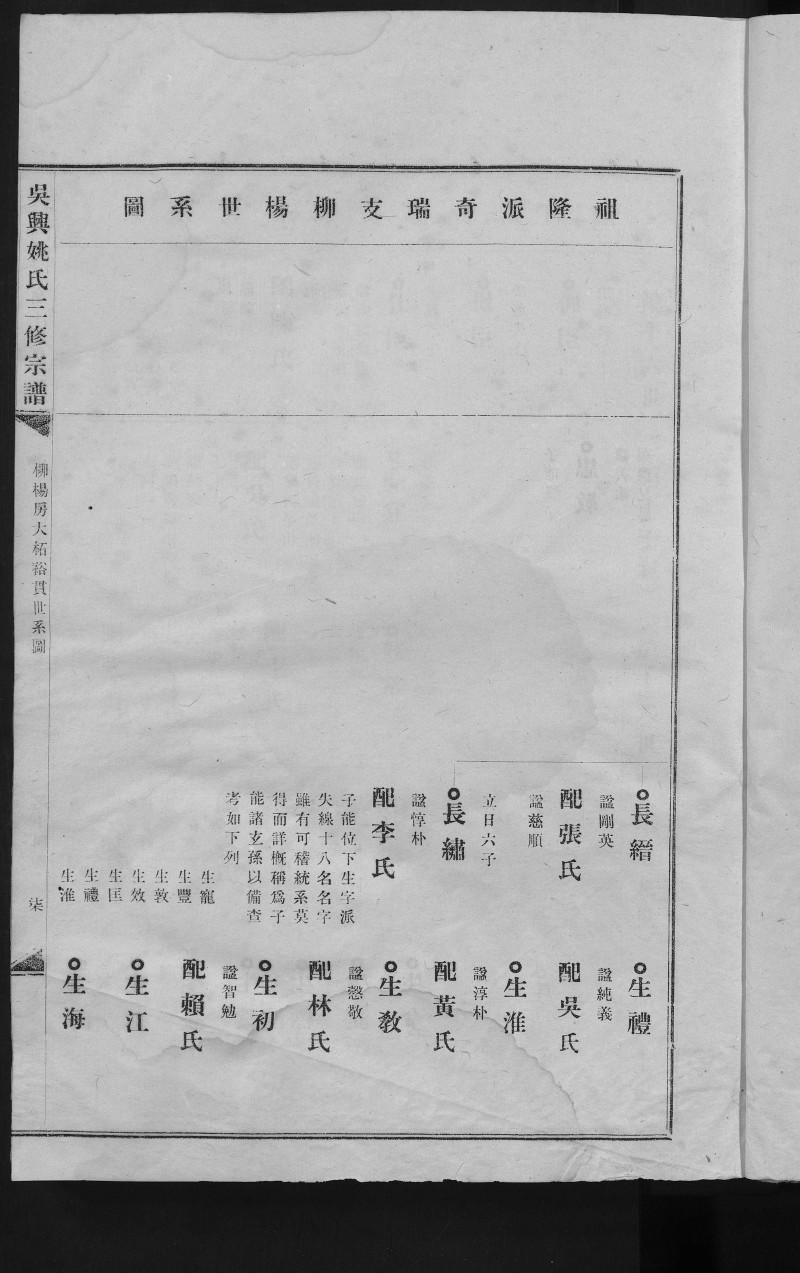 祖隆派奇瑞支柳楊世系圖
長縉
諡剛英
配張氏
諡慈順
立日六子
長繡
諡惇朴
配李氏
子能位下生字派
失線十八名名字
雖有可稽統系莫
得而詳概稱爲子
能諸玄孫以備查
考如下列
生寵
生豐
生敦
生效
生匡
生禮
生淮
生禮
諡純義
配吳氏
生淮
諡淳朴
配黃氏
生教
諡愨敬
配林氏
生初
諡智勉
配賴氏
生江
生海
吳興姚氏三修宗譜
柳楊房大柘裕貫世系圖
柒